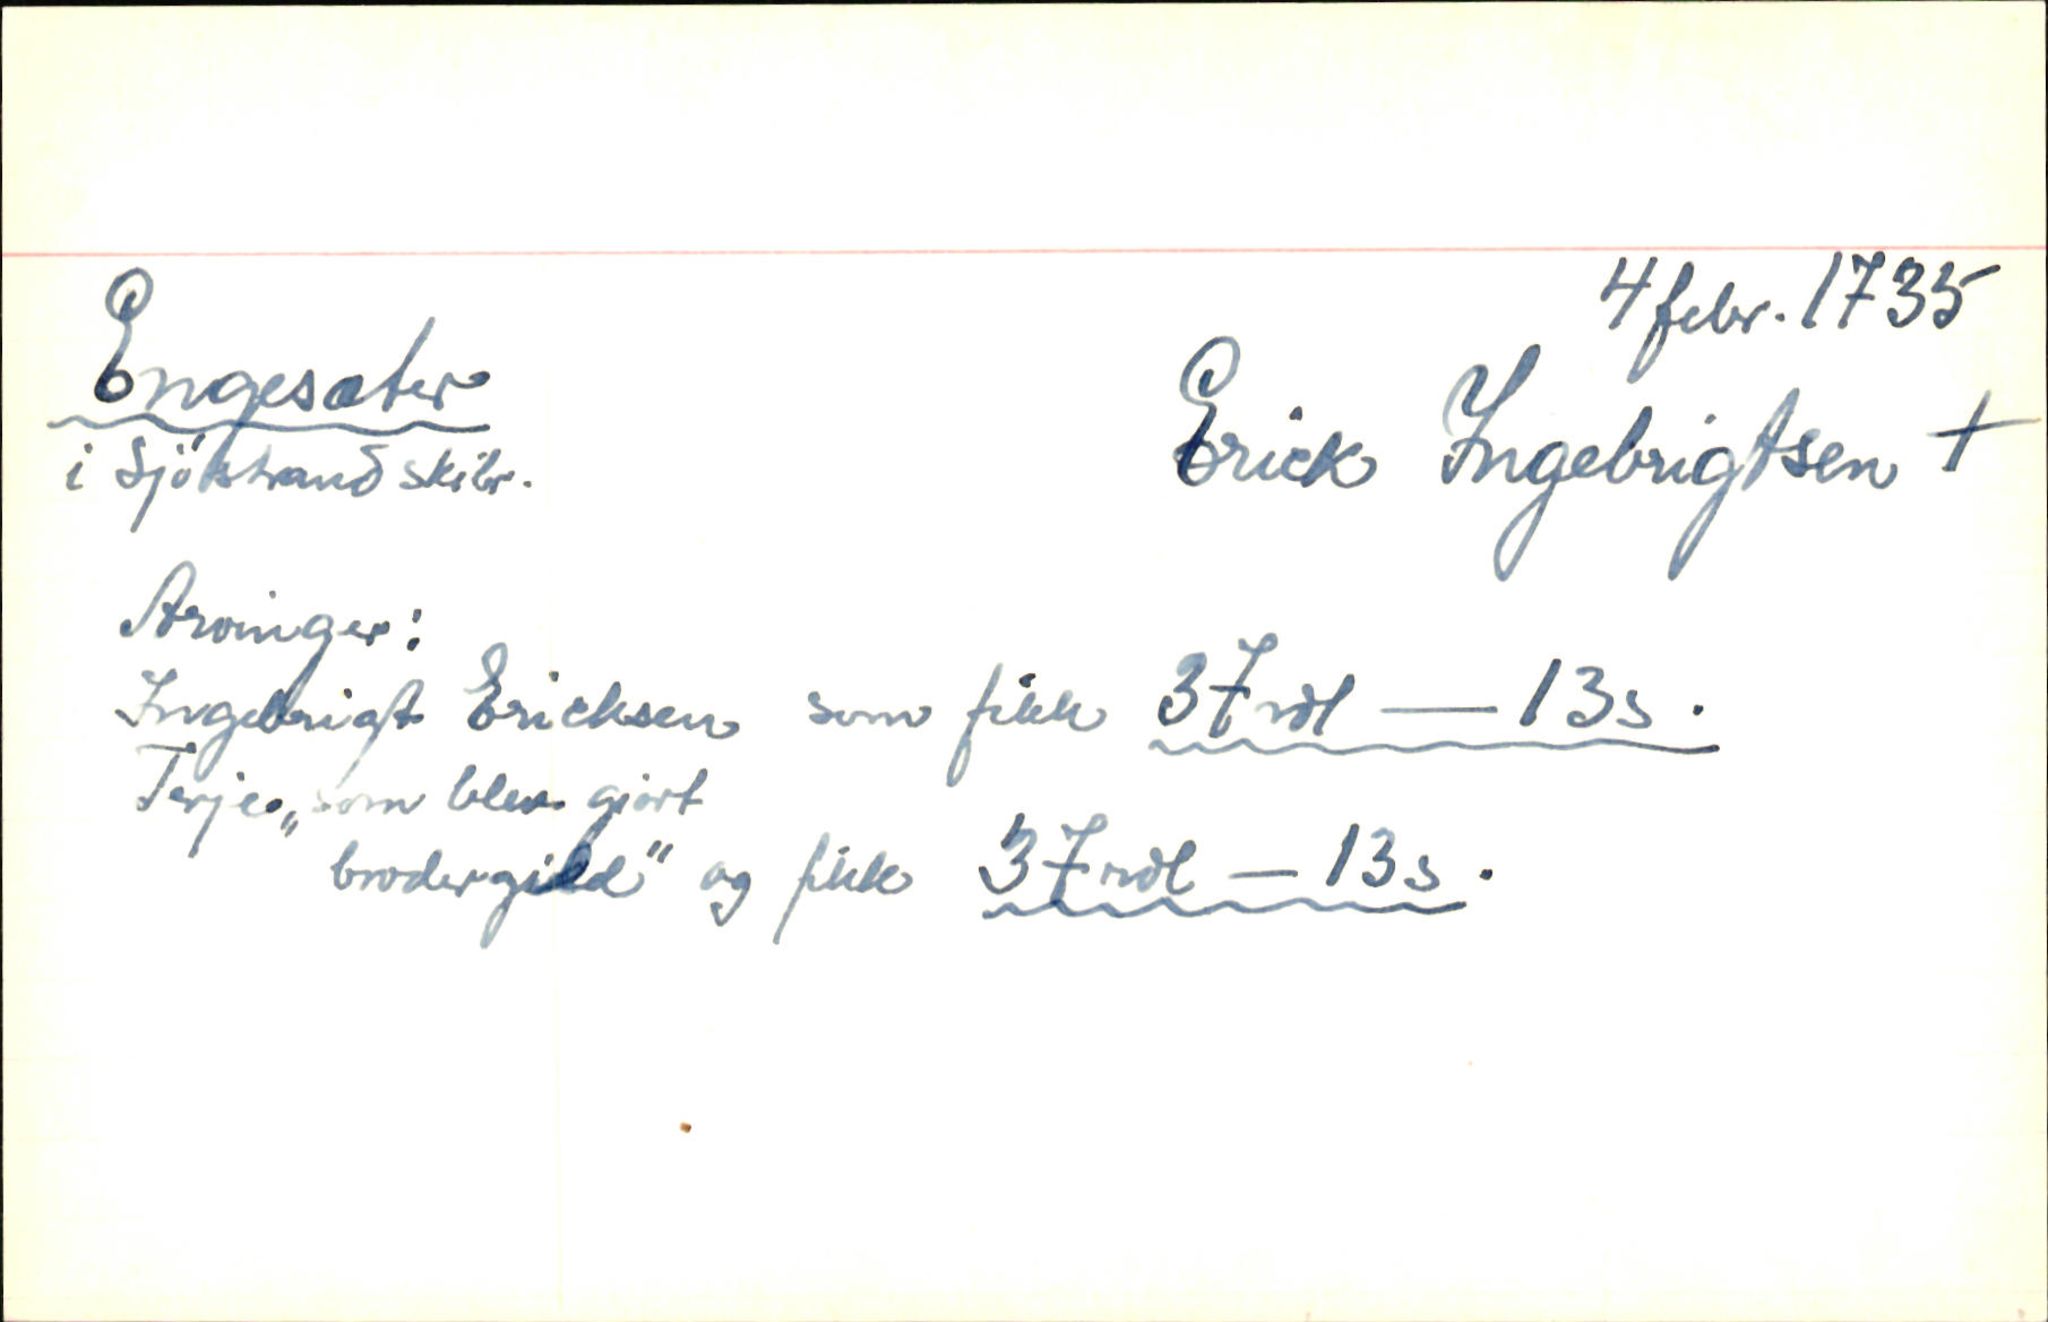 4 febr. 1735
Engesæter
i Sjöstrand skibr.
Erick Ingebrigtsen †
Arvinger:
Ingebrigt Ericksen som fikk 37 rdl — 13 s.
Terje „som blev giort
brodergild" og fikk 37 rdl — 13 s.